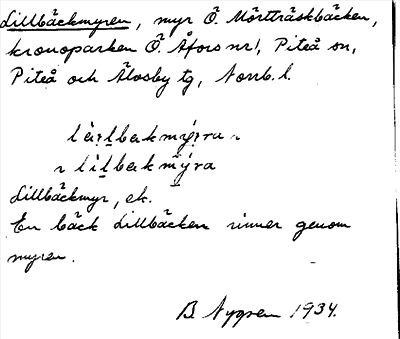 Lillbäckmyren, myr Ö. Mörtträskbäcken,
kronoparken Ö. Åfors nr 1, Piteå sn,
Piteå och Älvsby tg, Norrb. l.
Lillbäckmyr, ek.
En bäck Lillbäcken rinner genom
myren.
B. Nygren 1934.